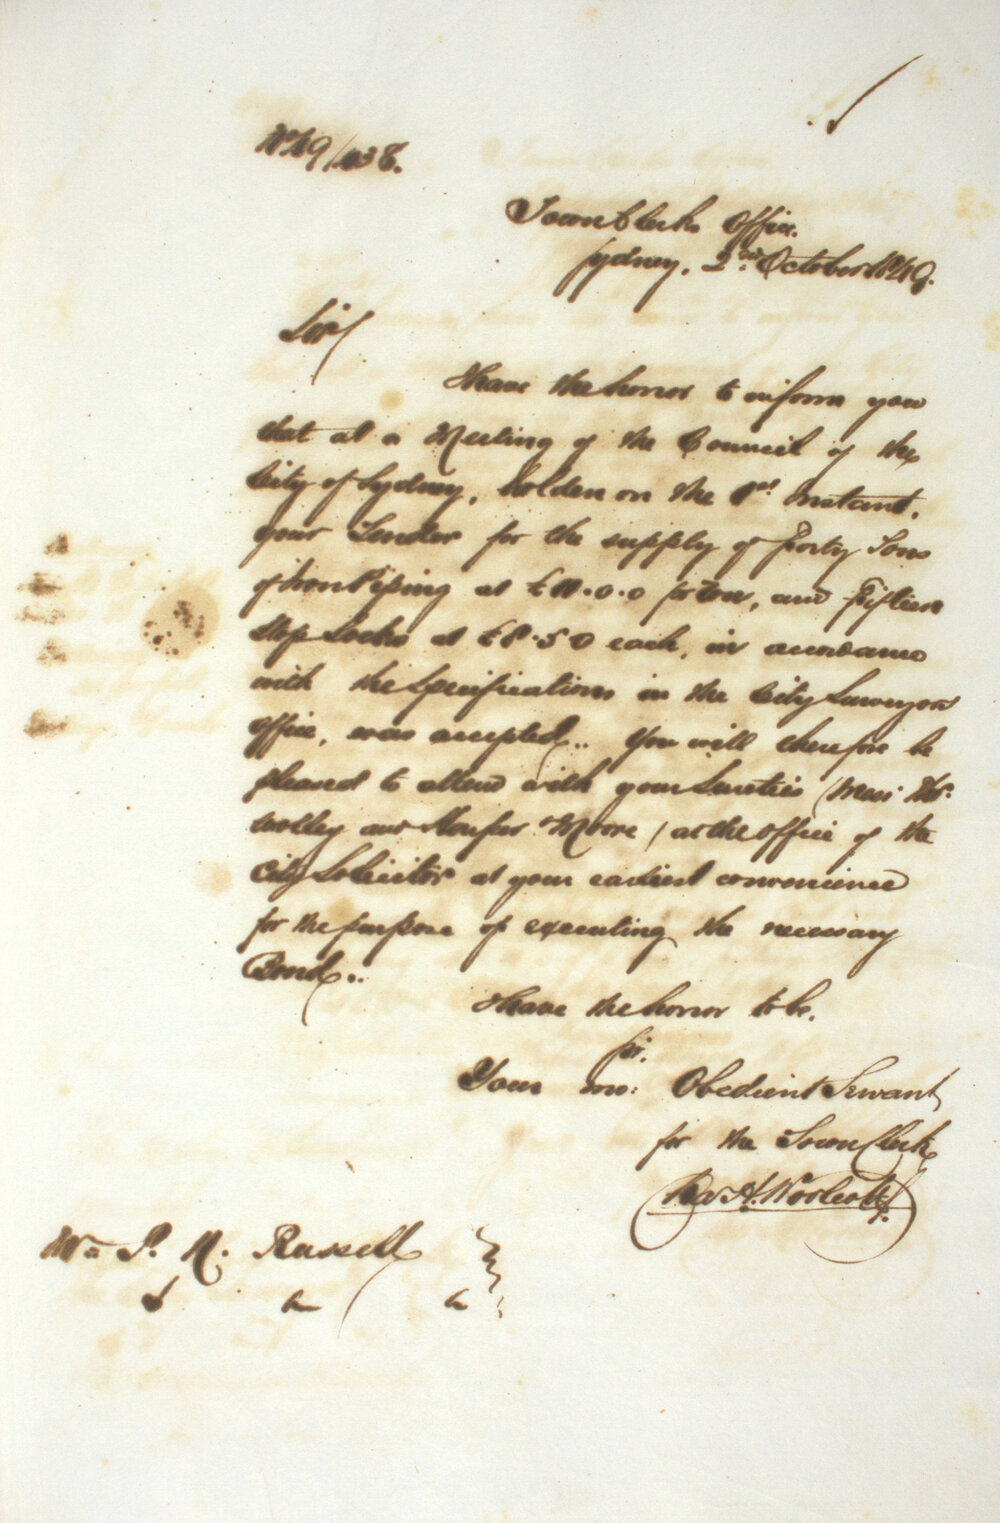 No 49/438.
Town Clerks Office.
Sydney, 2nd. October 1849.
Sir/
I have the honor to inform you
that at a Meeting of the Council of the
City of Sydney, holden on the 1st instant,
your Tender for the supply of forty Tons
of Iron Piping at £11.0.0 per ton, and Fifteen
Stop Locks at £8.5.0 each, in accordance
with the Specifications in the City Surveyors
Office, was accepted.. You will therefore be
pleased to attend with your Sureties (Messrs Wr.
Wolley and Moore) at the office of the
City Solicitor at your earliest convenience
for the purpose of executing the necessary
Bond..
I have the honor to be,
Sir,
Your mo: Obedient Servant
for the Town Clerk
Chas H. Woolcott
P. N. Russell